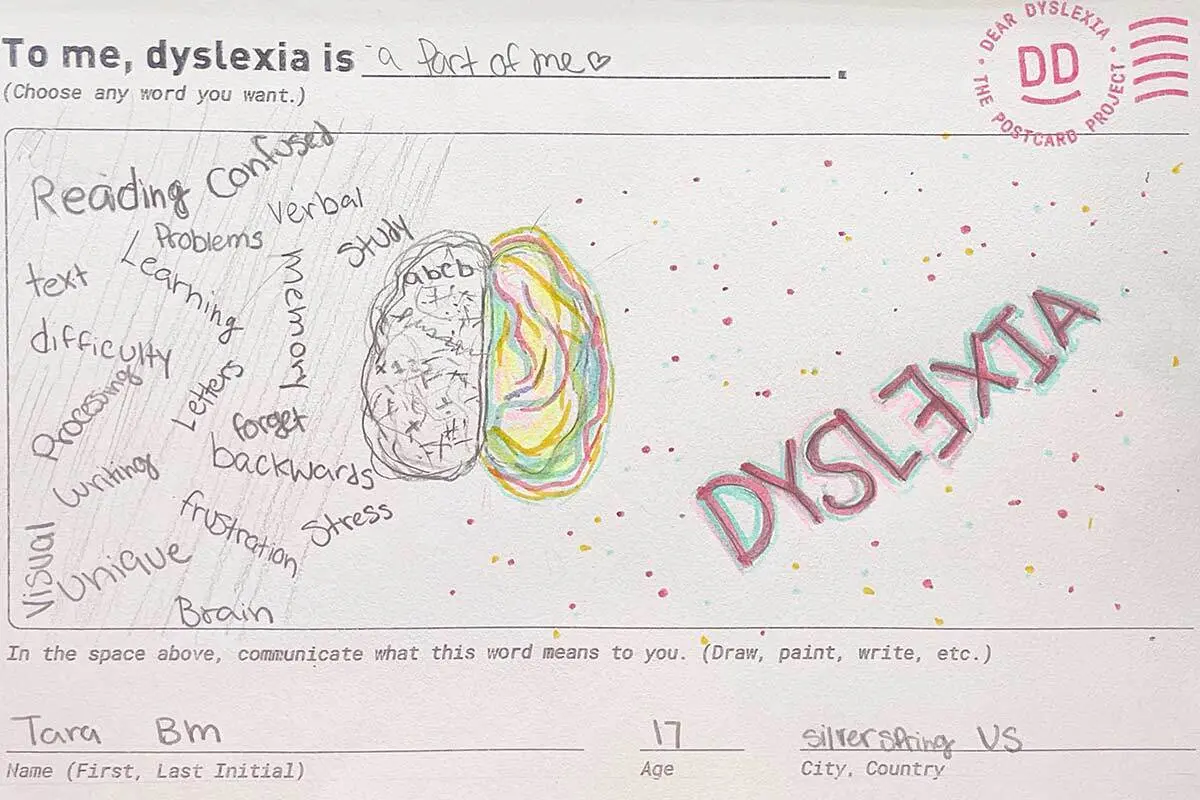 To me, dyslexia is a part of me♡.
(Choose any word you want.)
DEAR DYSLEXIA · THE POSTCARD PROJECT ·
DD
Reading
Confused
Verbal
Problems
Study
Learning
text
Memory
difficulty
Processing
Letters
forget
backwards
writing
frustration
Stress
Visual
Unique
Brain
abcb
DYSLEXIA
In the space above, communicate what this word means to you. (Draw, paint, write, etc.)
Tara Bm
17
silverspring US
Name (First, Last Initial)
Age
City, Country